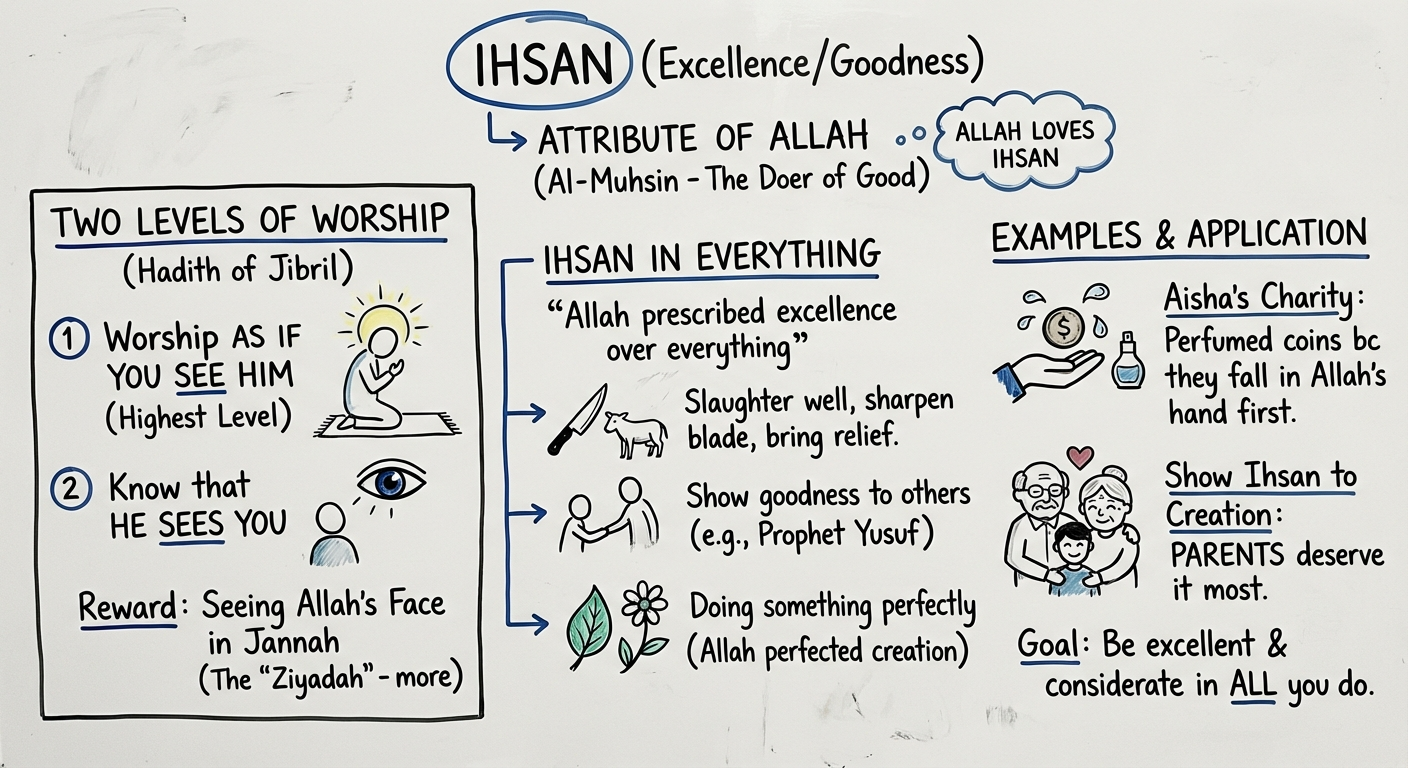 IHSAN (Excellence/Goodness)
ATTRIBUTE OF ALLAH
(Al-Muhsin - The Doer of Good)
ALLAH LOVES
IHSAN
TWO LEVELS OF WORSHIP
(Hadith of Jibril)
1 Worship AS IF
YOU SEE HIM
(Highest Level)
2 Know that
HE SEES YOU
Reward: Seeing Allah's Face
in Jannah
(The "Ziyadah" - more)
IHSAN IN EVERYTHING
"Allah prescribed excellence
over everything"
Slaughter well, sharpen
blade, bring relief.
Show goodness to others
(e.g., Prophet Yusuf)
Doing something perfectly
(Allah perfected creation)
EXAMPLES & APPLICATION
$
Aisha's Charity:
Perfumed coins bc
they fall in Allah's
hand first.
Show Ihsan to
Creation:
PARENTS deserve
it most.
Goal: Be excellent &
considerate in ALL you do.